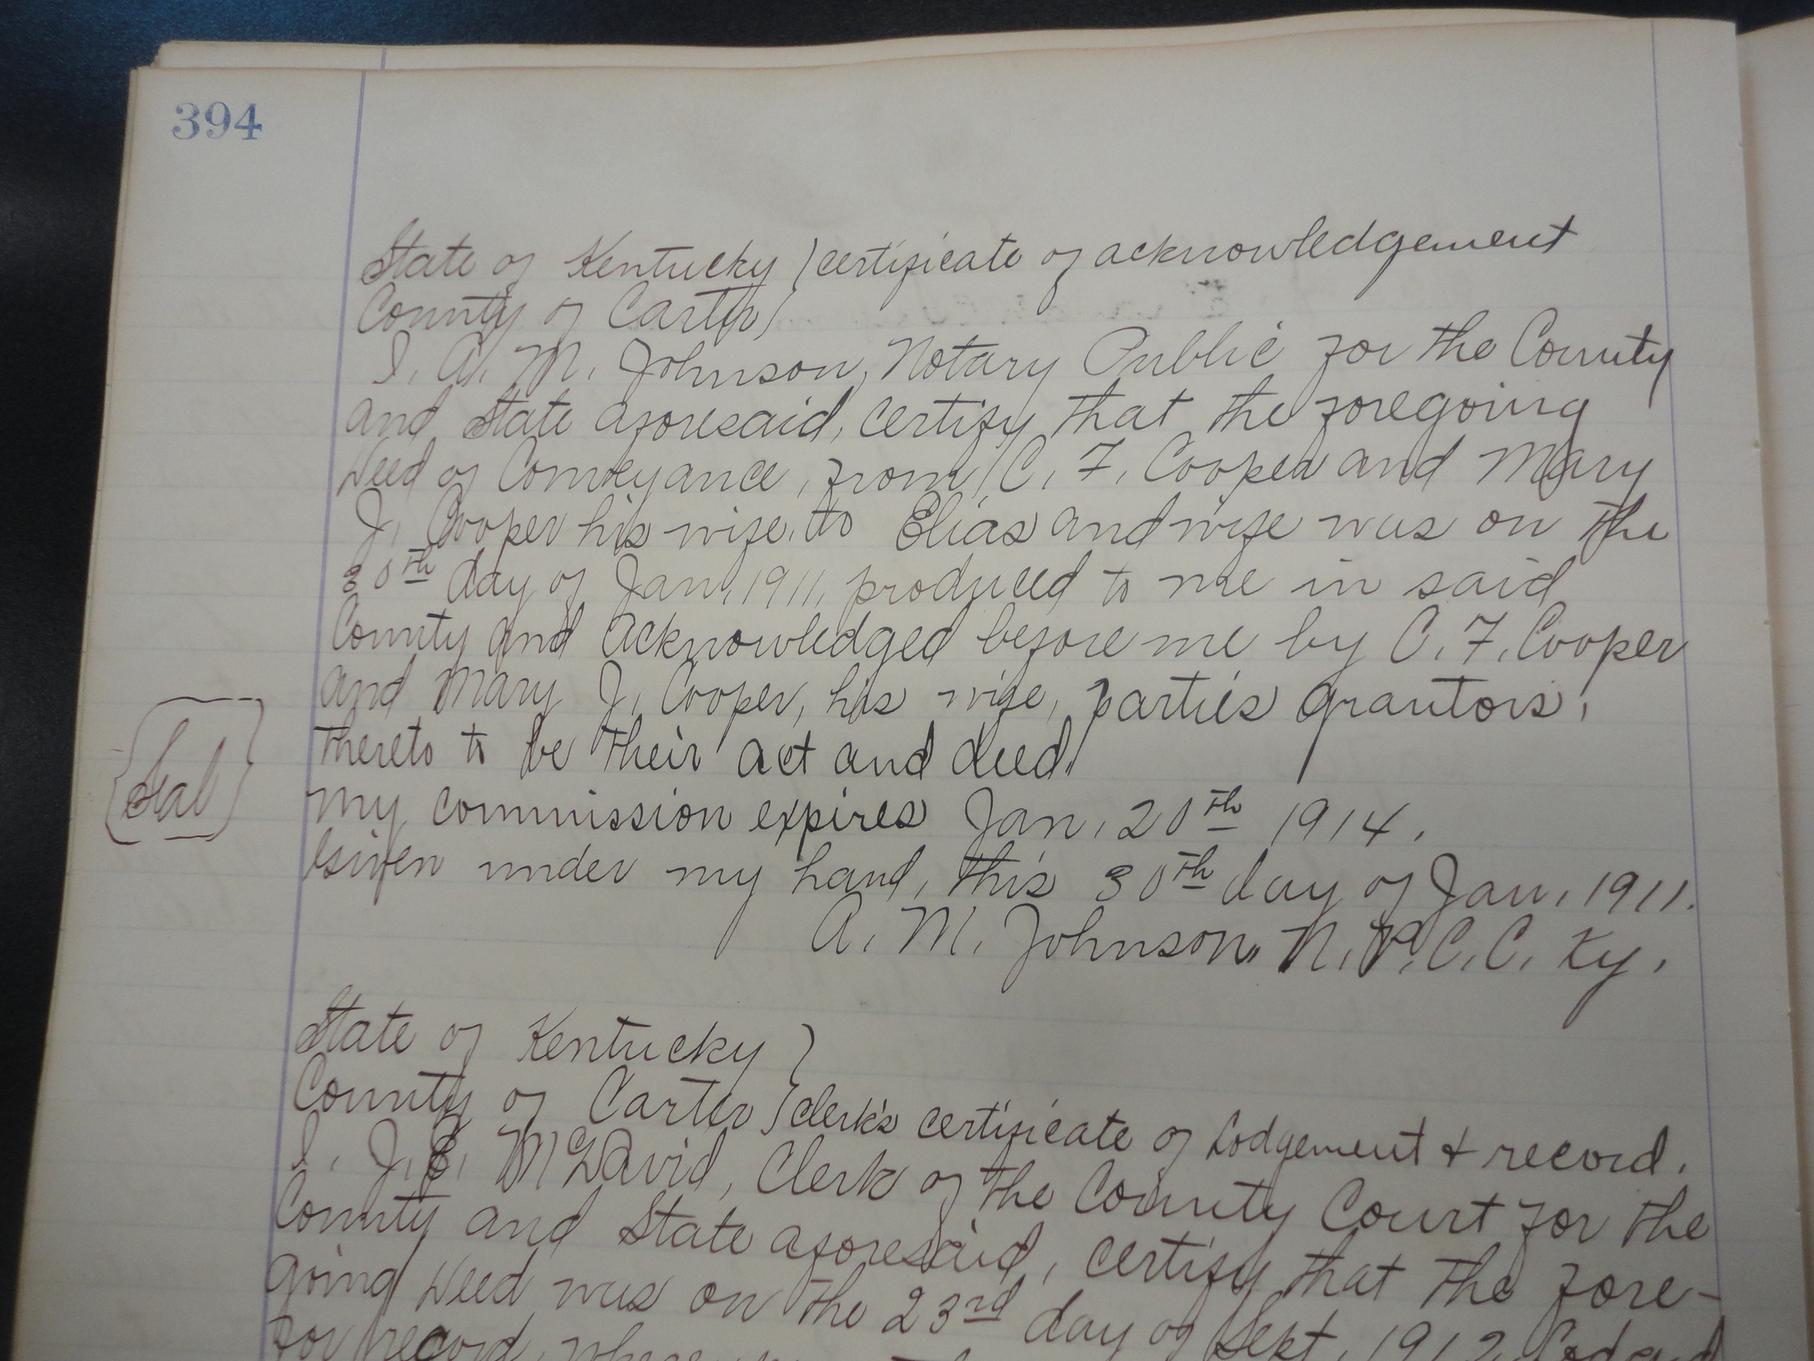 394
State of Kentucky } certificate of acknowledgement
County of Carter }
I. A. M. Johnson, Notary Public for the County
and State aforesaid, certify that the foregoing
Deed of Conveyance, from C. F. Cooper and Mary
J. Cooper his wife, to Elias and wife was on the
30th day of Jan, 1911, produced to me in said
County and acknowledged before me by C. F. Cooper
and Mary J. Cooper, his wife, parties grantors,
thereto to be their act and deed.
Seal
My commission expires Jan, 20th 1914.
Given under my hand, this 30th day of Jan, 1911.
A. M. Johnson, N. P. C. C. Ky.
State of Kentucky }
County of Carter } clerk's certificate of Lodgement & record.
I. J. E. McDavid, Clerk of the County Court for the
County and State aforesaid, certify that the fore-
going Deed was on the 23rd day of Sept, 1912,
for record,